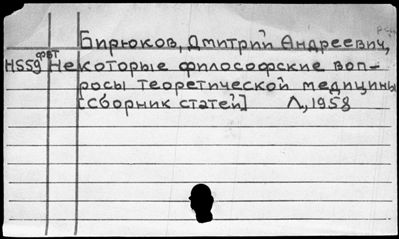 Бирюков, Дмитрий Андреевич,
фвт
H559 Некоторые философские воп-
росы теоретической медицины
[сборник статей] Л, 1958